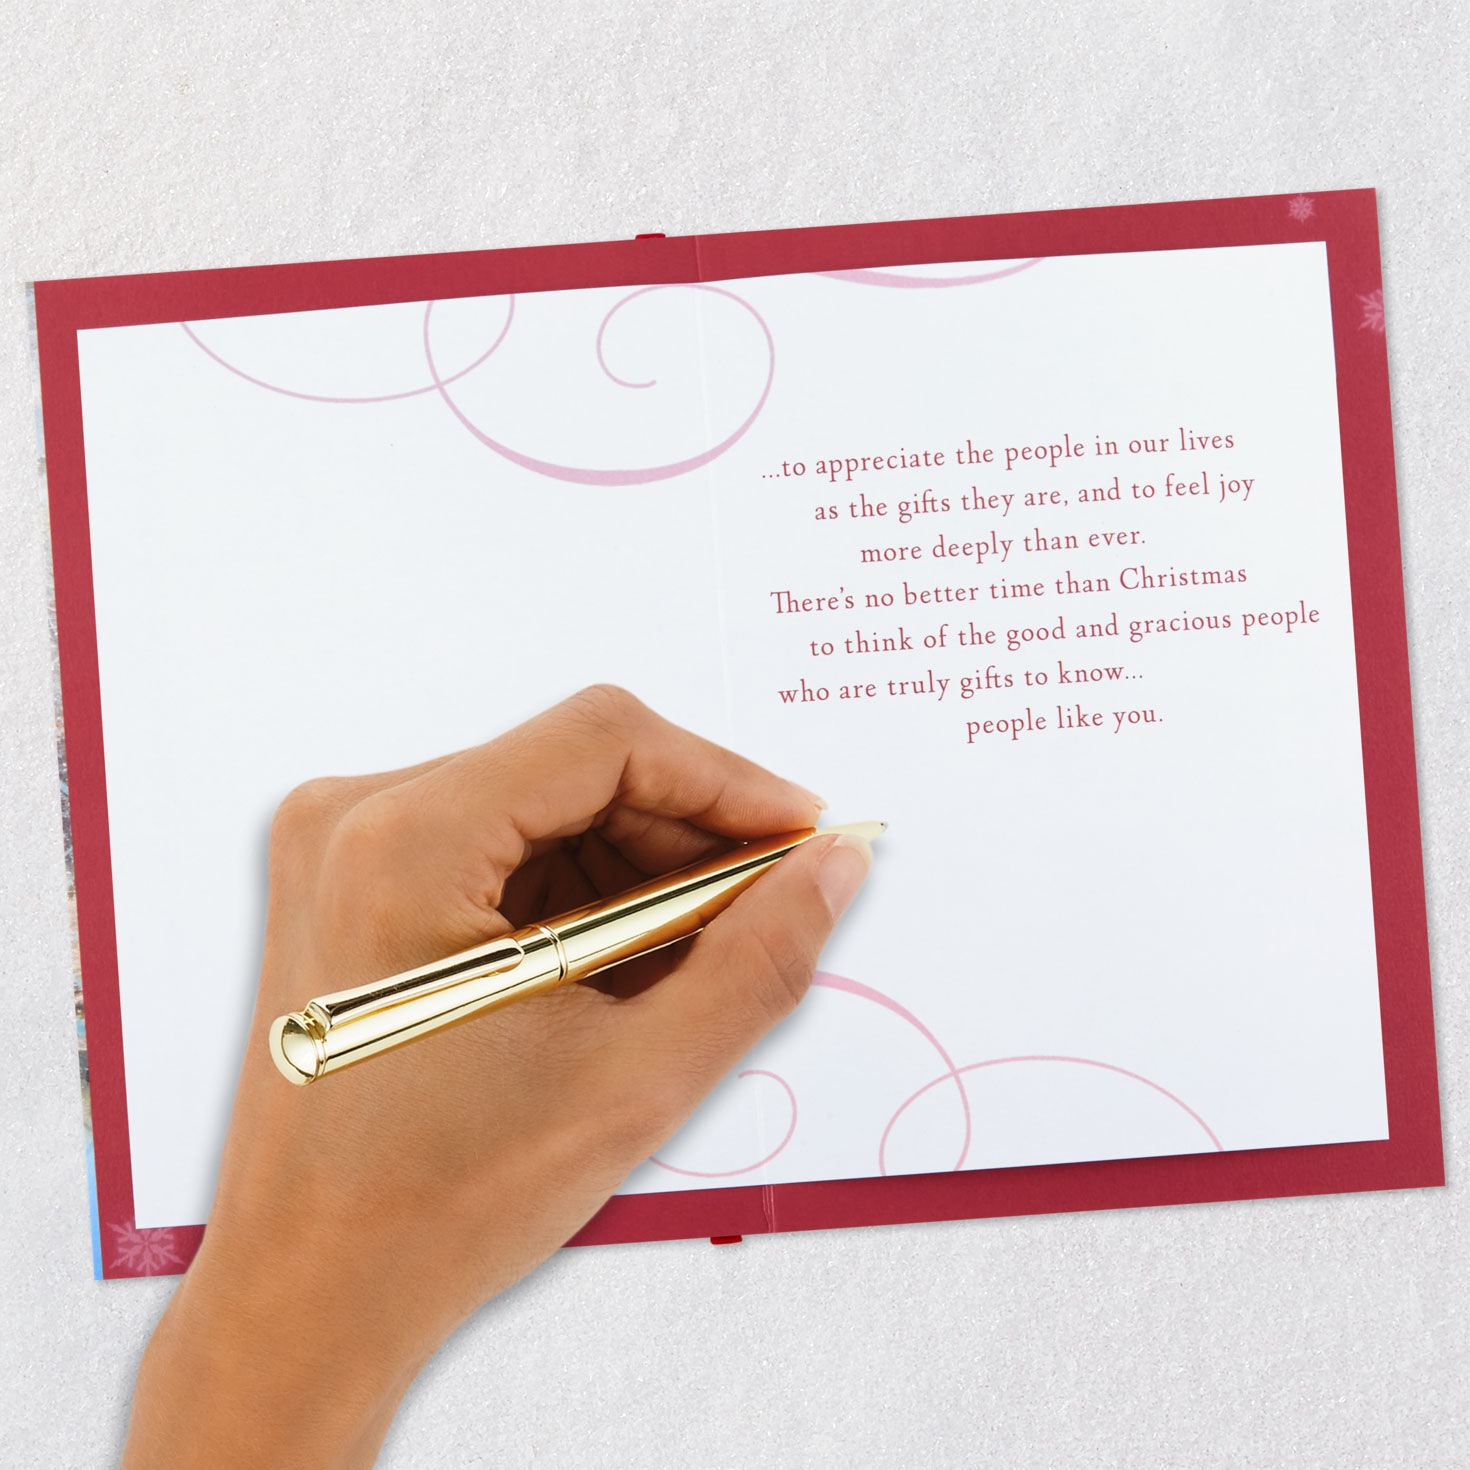 ...to appreciate the people in our lives
as the gifts they are, and to feel joy
more deeply than ever.
There's no better time than Christmas
to think of the good and gracious people
who are truly gifts to know...
people like you.